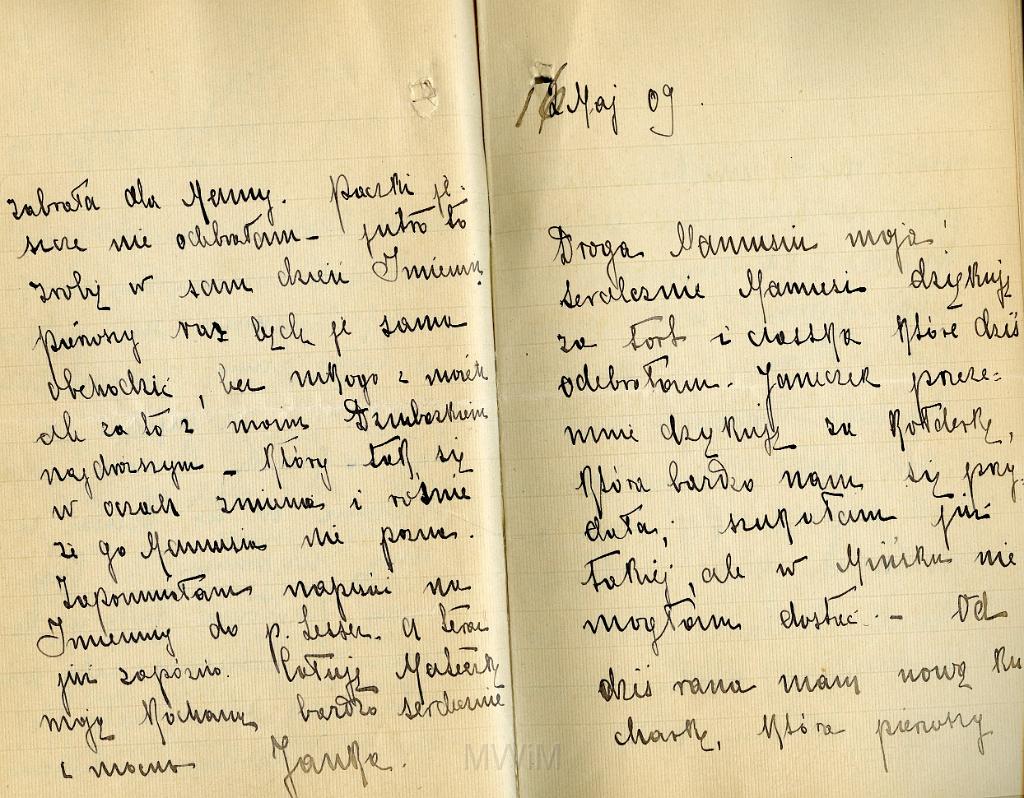 Maj 09.
Droga Mamusiu moja!
Serdecznie Mamusi dziękuję
za tort i ciastka które dziś
odebrałam. Janeczek preze=
mnie dzykuję za kołderkę,
która bardzo nam się przy
dała, szukałam już
takiej, ale w Mińsku nie
mogłam dostać. - Od
dziś rana mam nową ku
charkę, która pierwszy
zabrała dla Mamy. Paczki je-
szcze nie odebrałam - jutro to
zrobię w sam dzień Imienin,
pierwszy raz będę je sama
obchodzić, bez nikogo z
ale za to z moim
najdroższym - który tak się
w oczach zmienia i rośnie
że go Mamusia nie pozna.
Zapomniałam napisać na
Imieniny do p. Lesser. A teraz
już zapóźno. Całuję Mateczkę
moją kochaną bardzo serdecznie
i mocno Janka.
MWiM